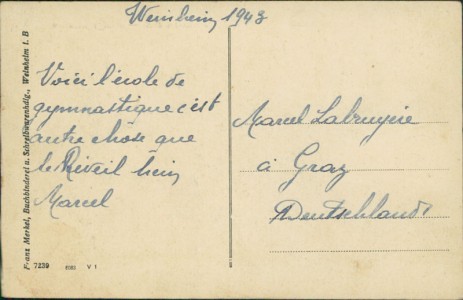 Weinheim 1943
Voici l'école de
gymnastique c'est
autre chose que
le Réveil hein
Marcel
Marcel Labruyère
à Graz
Deutschland
Franz Merkel, Buchbinderei u. Schreibwarenhdlg., Weinheim i. B
7239 V 1